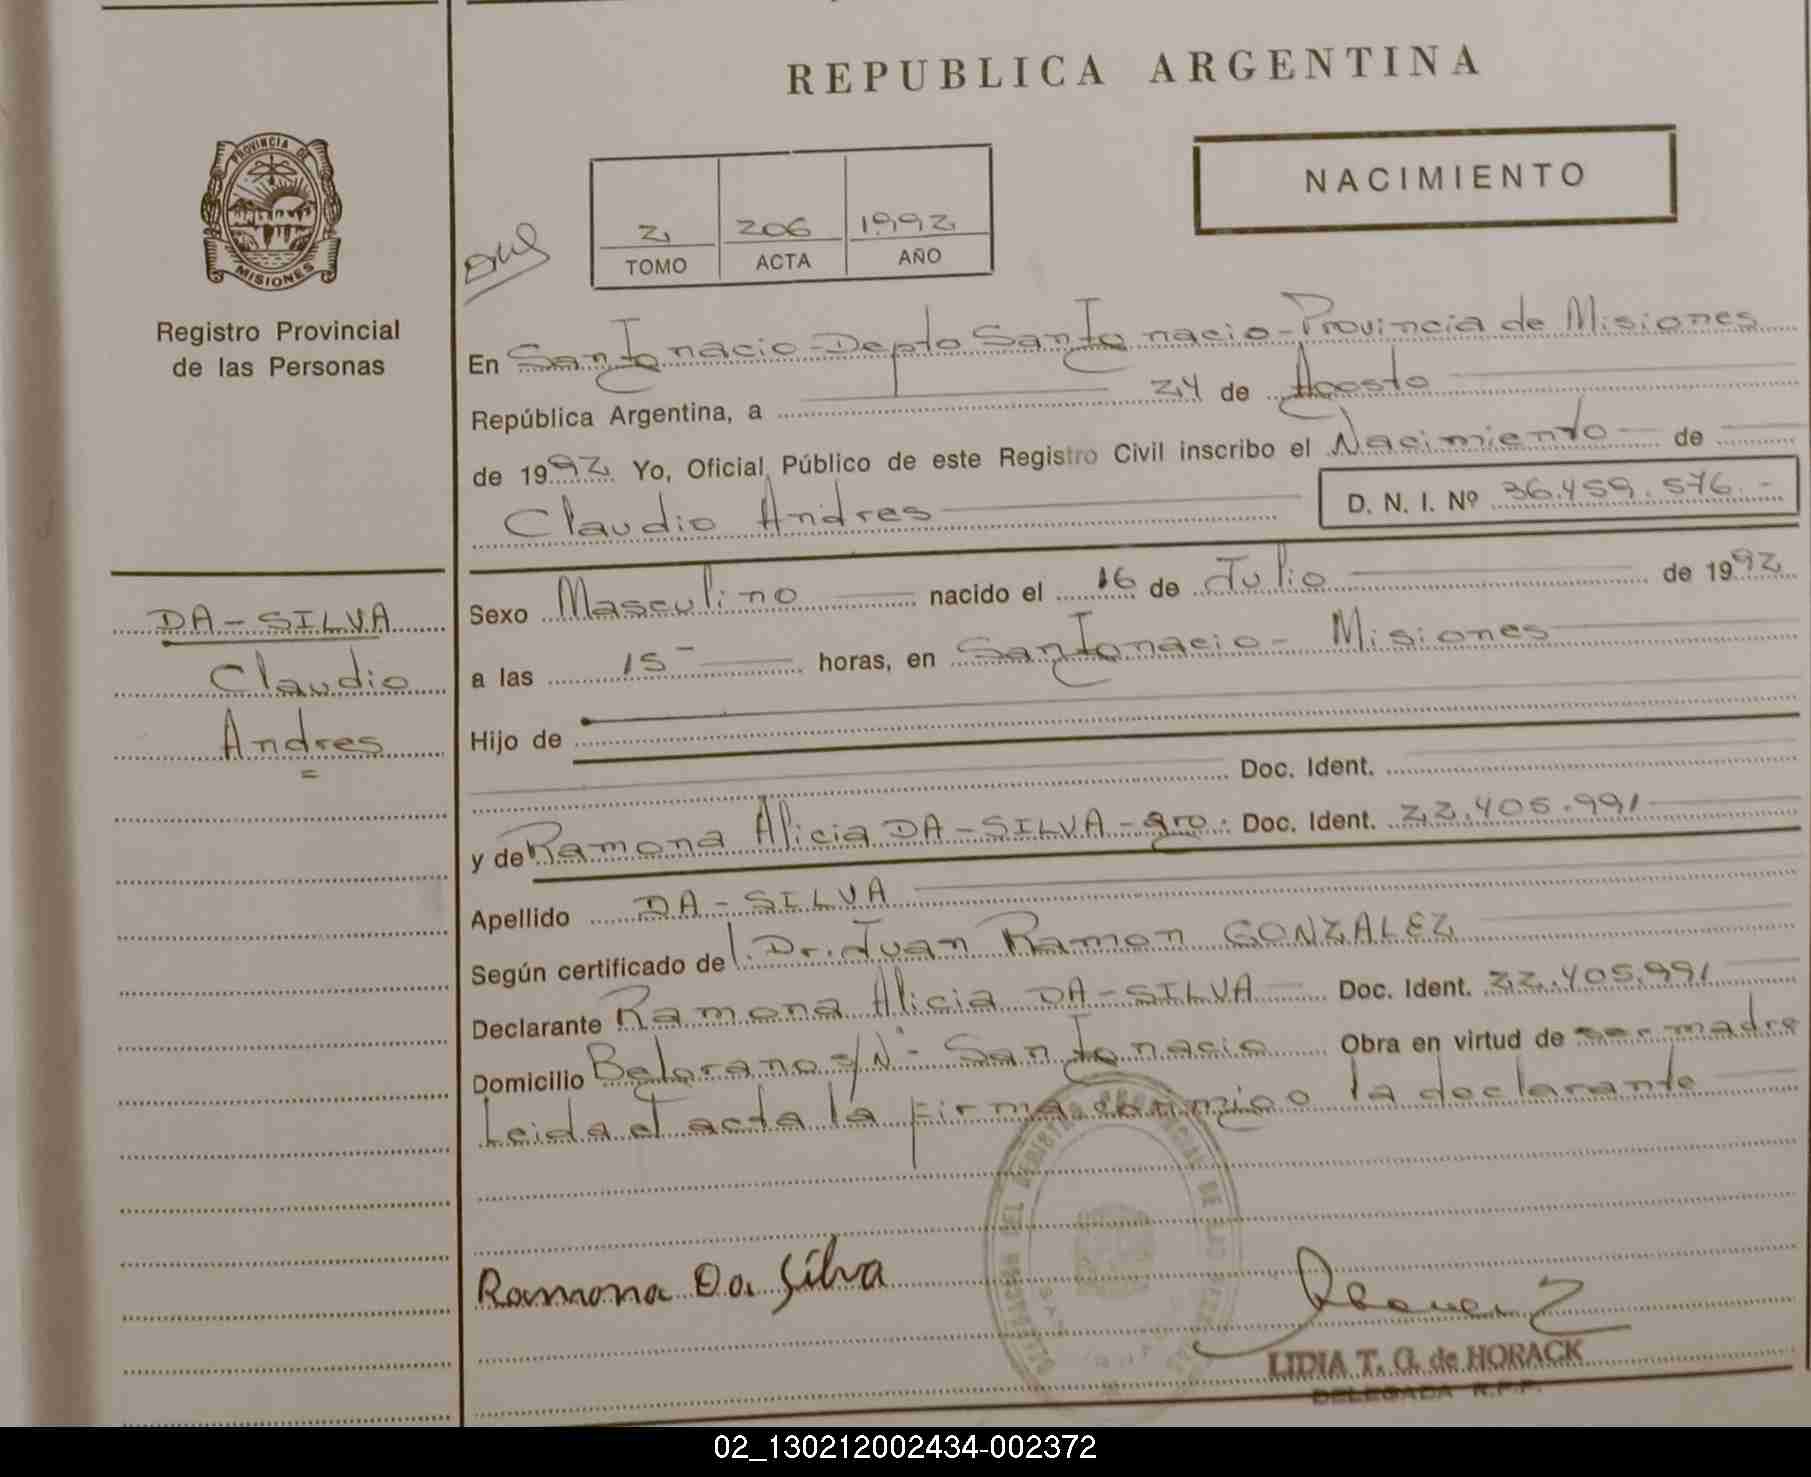 REPUBLICA ARGENTINA
PROVINCIA DE
MISIONES
Registro Provincial
de las Personas
NACIMIENTO
2 206 1992
TOMO ACTA AÑO
En San Ignacio - Depto San Ignacio - Provincia de Misiones
República Argentina, a 24 de Agosto
de 1992 Yo, Oficial Público de este Registro Civil inscribo el Nacimiento de
Claudio Andres D. N. I. Nº 36.459.576.-
DA-SILVA
Claudio
Andres
Sexo Masculino nacido el 16 de Julio de 1992
a las 15- horas, en San Ignacio - Misiones
Hijo de
Doc. Ident.
y de Ramona Alicia DA-SILVA - Doc. Ident. 22.405.991
Apellido DA-SILVA
Según certificado del Dr. Juan Ramon GONZALEZ
Declarante Ramona Alicia DA-SILVA Doc. Ident. 22.405.991
Domicilio Belgrano s/Nº - San Ignacio Obra en virtud de ser madre
Leida el acta la firma conmigo la declarante
Ramona Da Silva
LIDIA T. G. de HORACK
DELEGADA R.P.P.
02_130212002434-002372